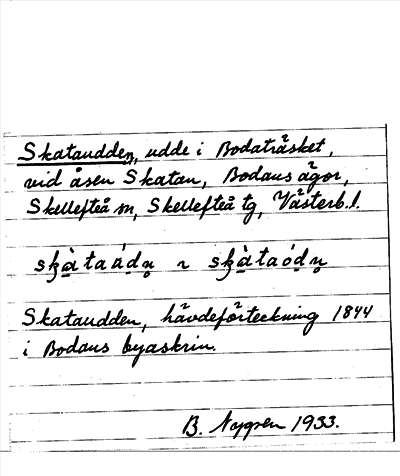 Skataudden, udde i Bodaträsket,
vid åsen Skatan, Bodans ägor,
Skellefteå sn, Skellefteå tg, Västerb. l.
sk̯àtaúdn̥ ~ sk̯àtaódn̥
Skataudden, hävdeförteckning 1844
i Bodans byaskrin.
B. Nygren 1933.